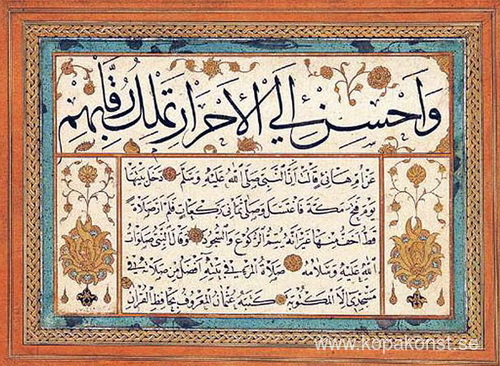 وَاَحْسِنْ اِلَى الْاَحْرَارِ تَمْلِكْ رِقَابَهُمْ
عن ام هانئ قالت ان النبي صلى الله عليه وسلم دخل بيتها
يوم فتح مكة فاغتسل وصلى ثماني ركعات فلم ار صلاة
قط اخف منها غير انه يتم الركوع والسجود وقال النبي صلوات
الله عليه وسلامه صلاة المرء في بيته افضل من صلاته في
مسجدي الا المكتوبة كتبه عثمان المعروف بحافظ القرآن
www.kopakonst.se